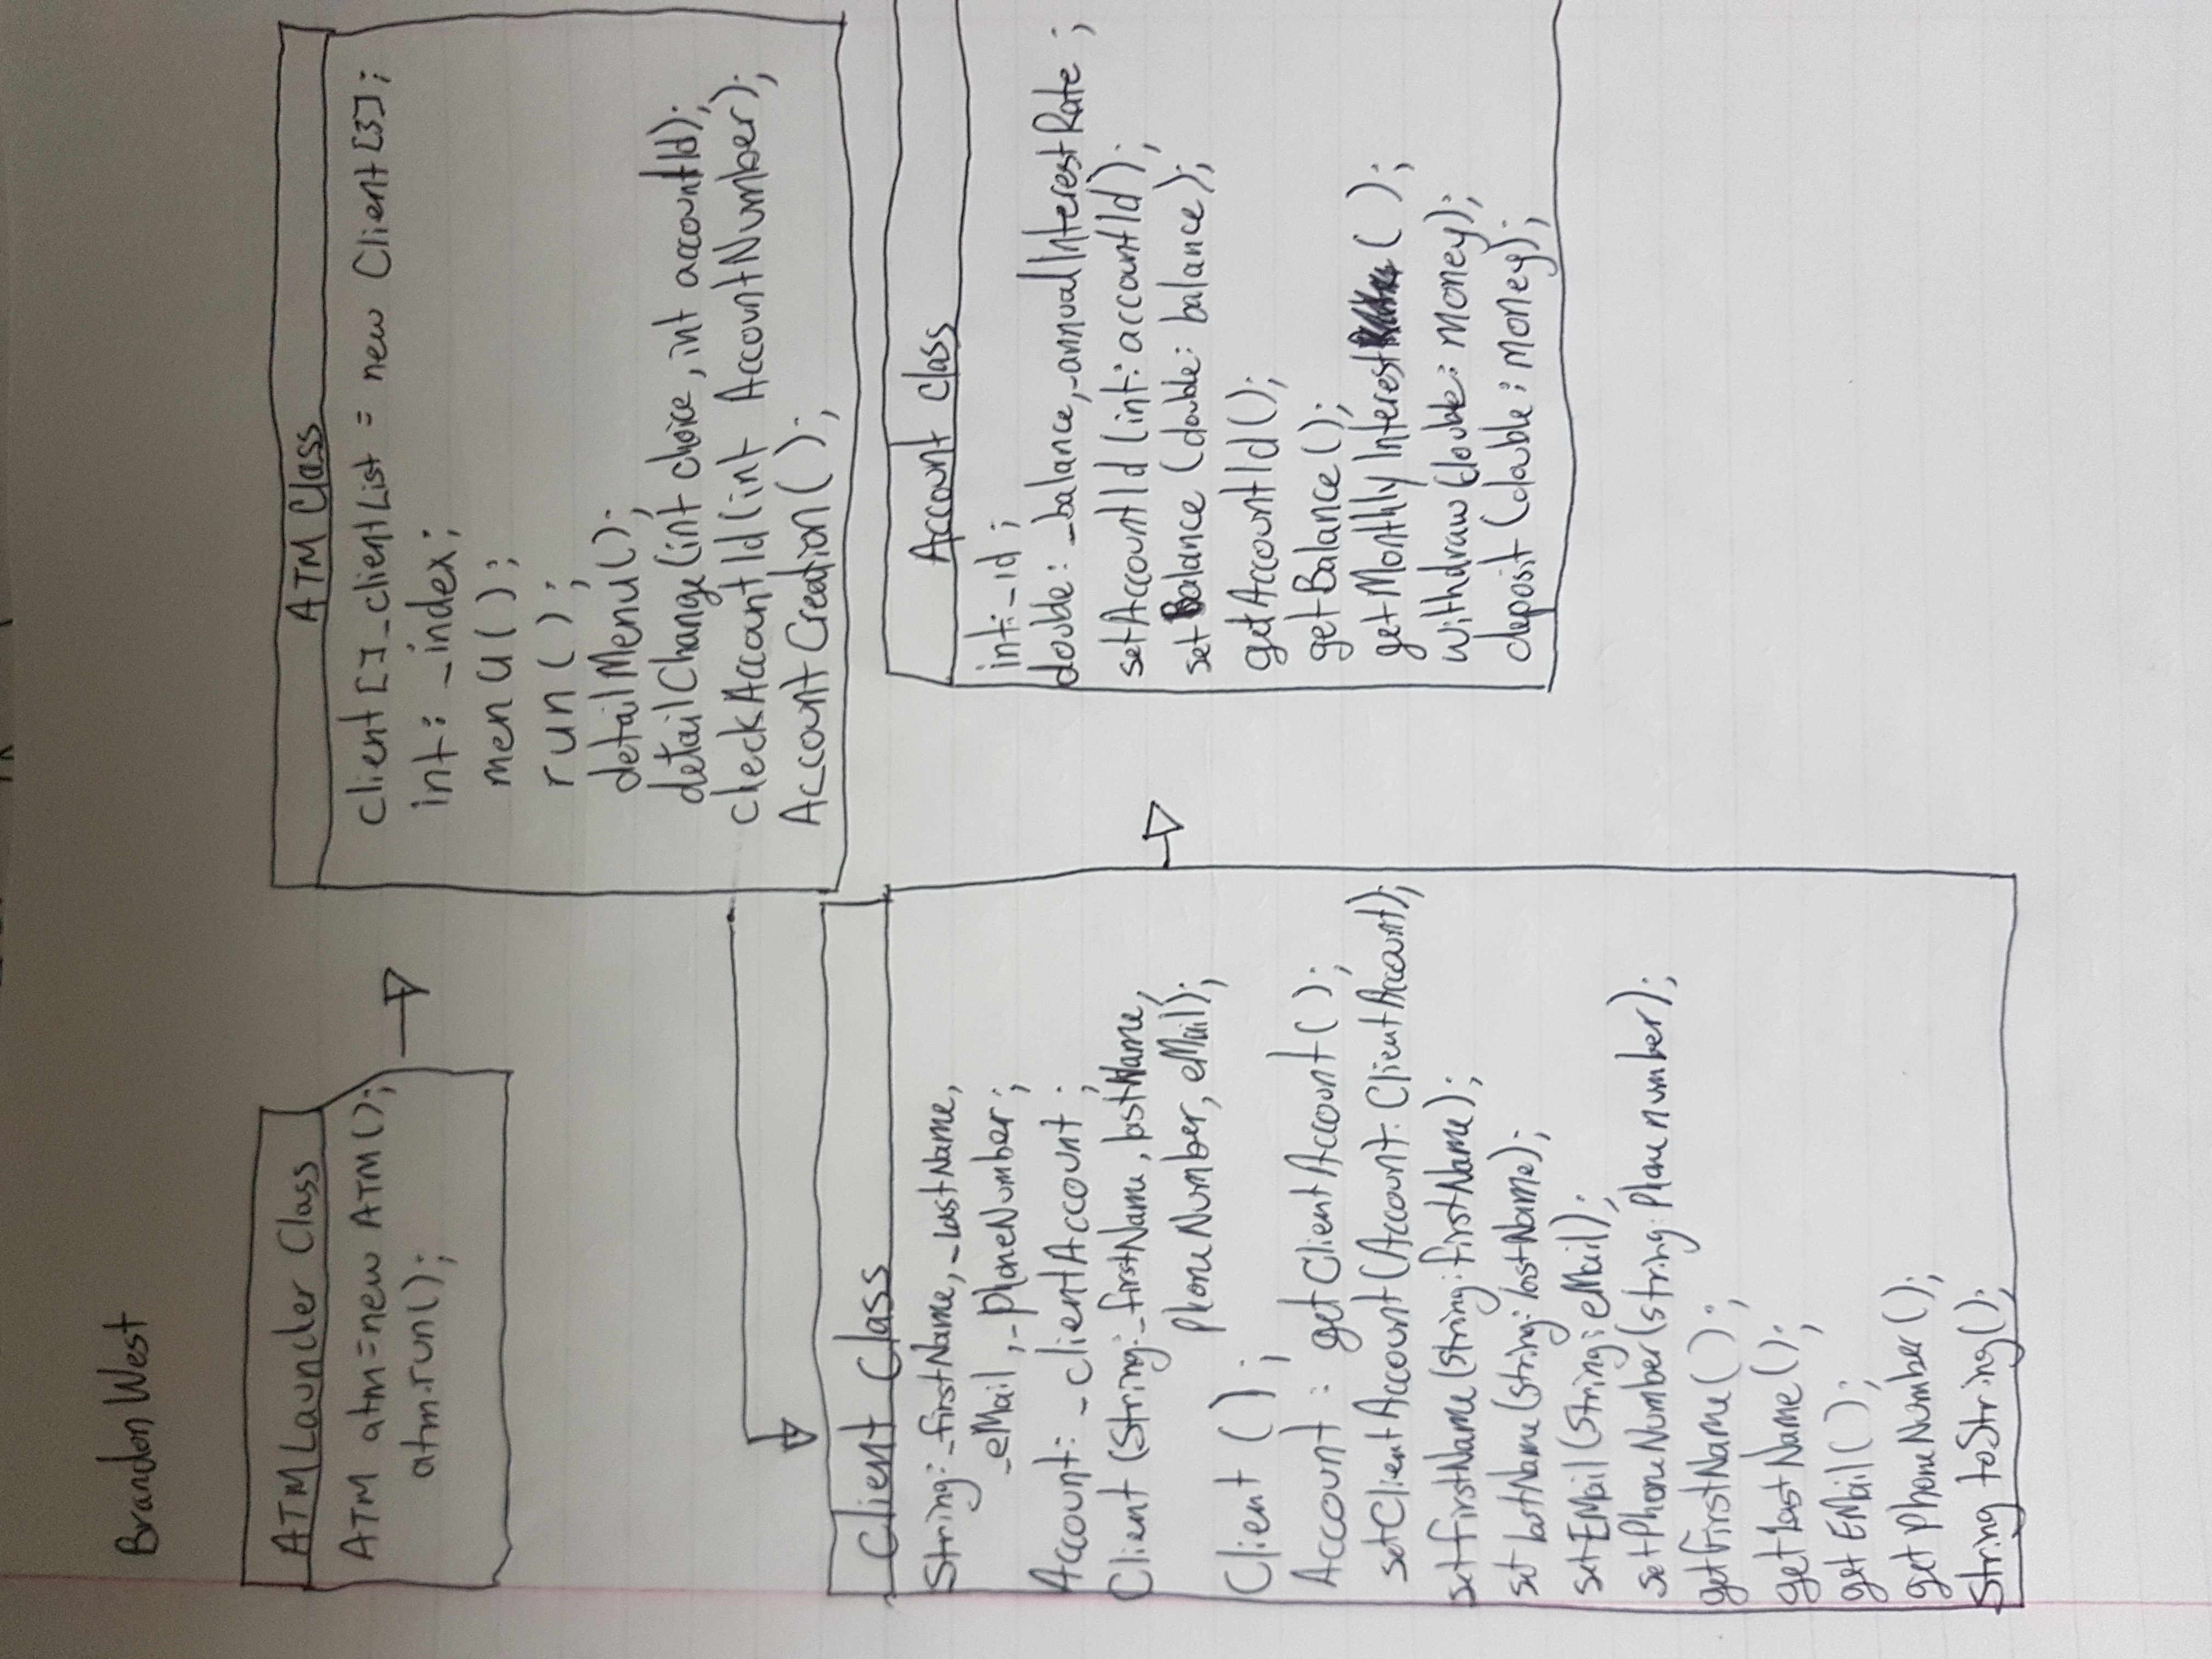 Brandon West
ATMLauncher Class
ATM atm=new ATM();
atm.run();
ATM Class
client[]_clientList = new Client[3];
int: _index;
menu();
run();
detailMenu();
detailChange(int choice, int accountId);
checkAccountId(int AccountNumber);
AccountCreation();
Client Class
String: _firstName, _lastName,
_eMail, _phoneNumber;
Account: _clientAccount;
Client (String: _firstName, lastName,
phoneNumber, eMail);
Client ();
Account : getClientAccount();
setClientAccount(Account: ClientAccount);
setfirstName(string: firstName);
setlastName(string: lastName);
setEMail(string: eMail);
setPhoneNumber(string: Phonenumber);
getfirstName();
getLastName();
getEMail();
getPhoneNumber();
String toString();
Account class
int: _id ;
double: _balance, _annualInterestRate ;
setAccountId (int: accountId);
setBalance (double: balance);
getAccountId();
getBalance();
getMonthlyInterest ();
withdraw(double: money);
deposit(double: money);